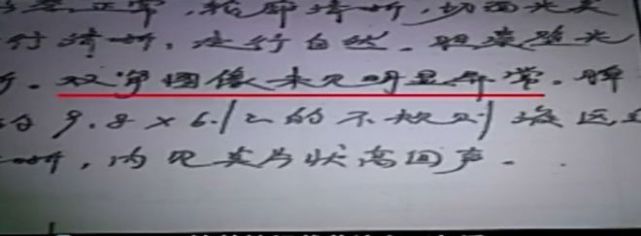 正常，轮廓清晰，切面光美
行清晰，走行自然。胆囊壁光
。双肾图像未见明显异常。脾
9.8×6.12的不规则液区
晰，内见实片状高回声。